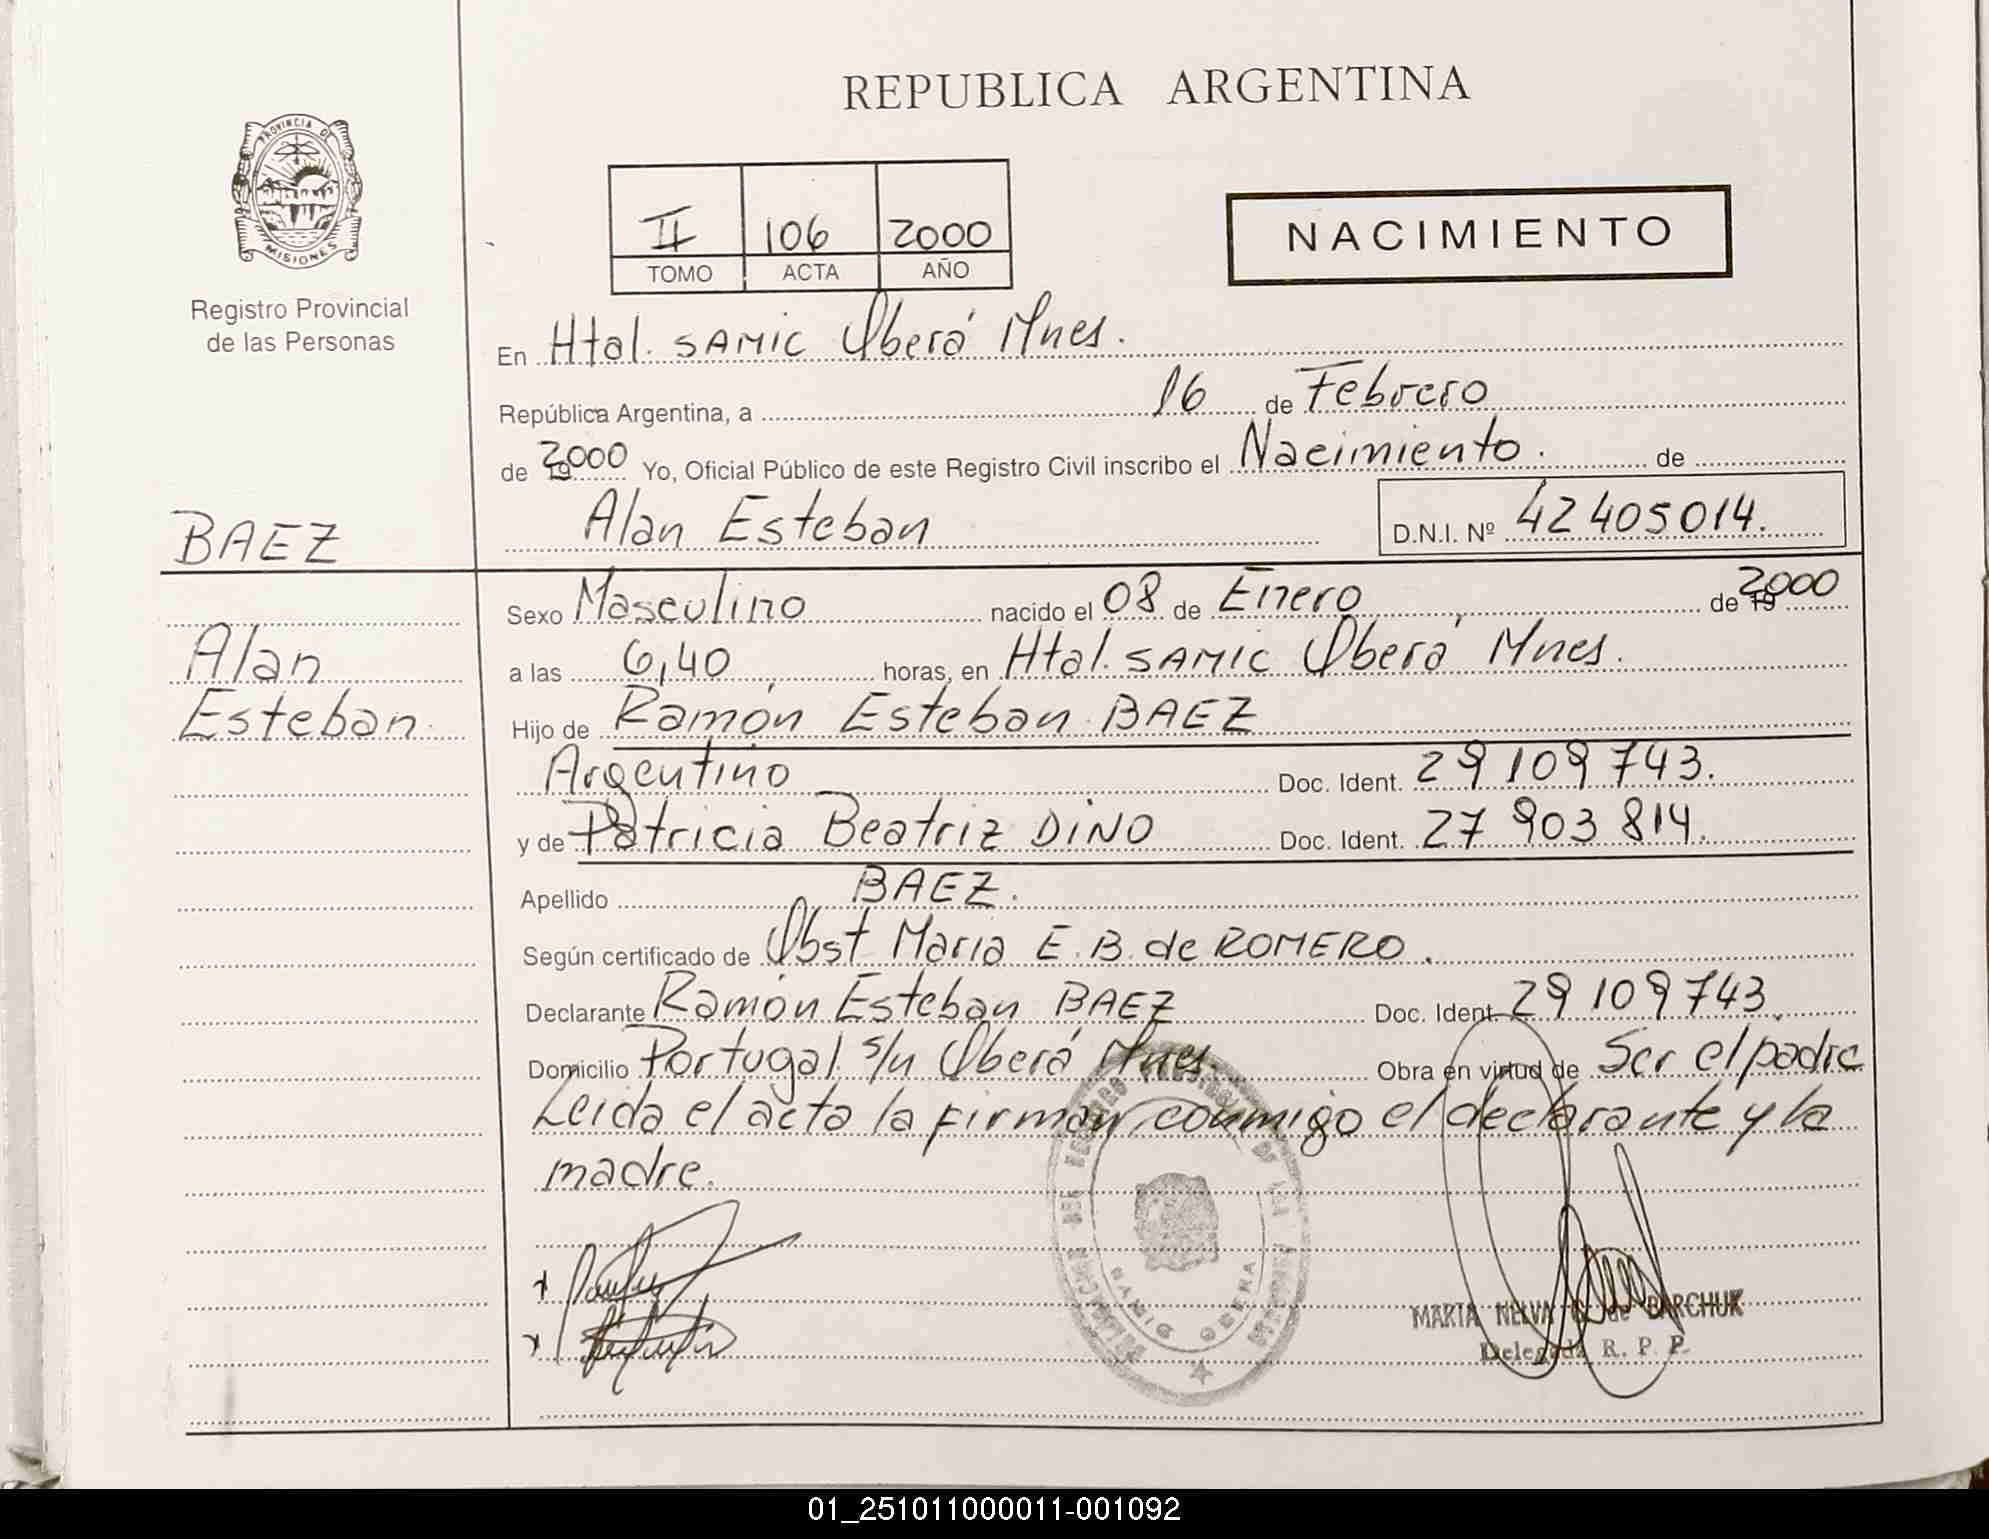 REPUBLICA ARGENTINA
PROVINCIA DE
MISIONES
Registro Provincial
de las Personas
II 106 2000
TOMO ACTA AÑO
NACIMIENTO
En Htal. SAMIC Oberá Mnes.
República Argentina, a 16 de Febrero
de 2000 Yo, Oficial Público de este Registro Civil inscribo el Nacimiento. de
BAEZ
Alan Esteban
D.N.I. Nº 42405014.
Alan
Esteban.
Sexo Masculino nacido el 08 de Enero de 2000
a las 6,40 horas, en Htal. SAMIC Oberá Mnes.
Hijo de Ramón Esteban BAEZ
Argentino Doc. Ident. 29109743.
y de Patricia Beatriz DINO Doc. Ident. 27 903 814.
Apellido BAEZ.
Según certificado de Obst Maria E. B. de ROMERO.
Declarante Ramón Esteban BAEZ Doc. Ident. 29109743.
Domicilio Portugal s/n Oberá Mnes. Obra en virtud de Ser el padre
Leida el acta la firman conmigo el declarante y la
madre.
SAMIC OBERA
MARTA NELVA G. de BARCHUK
Delegada R. P. P.
01_251011000011-001092